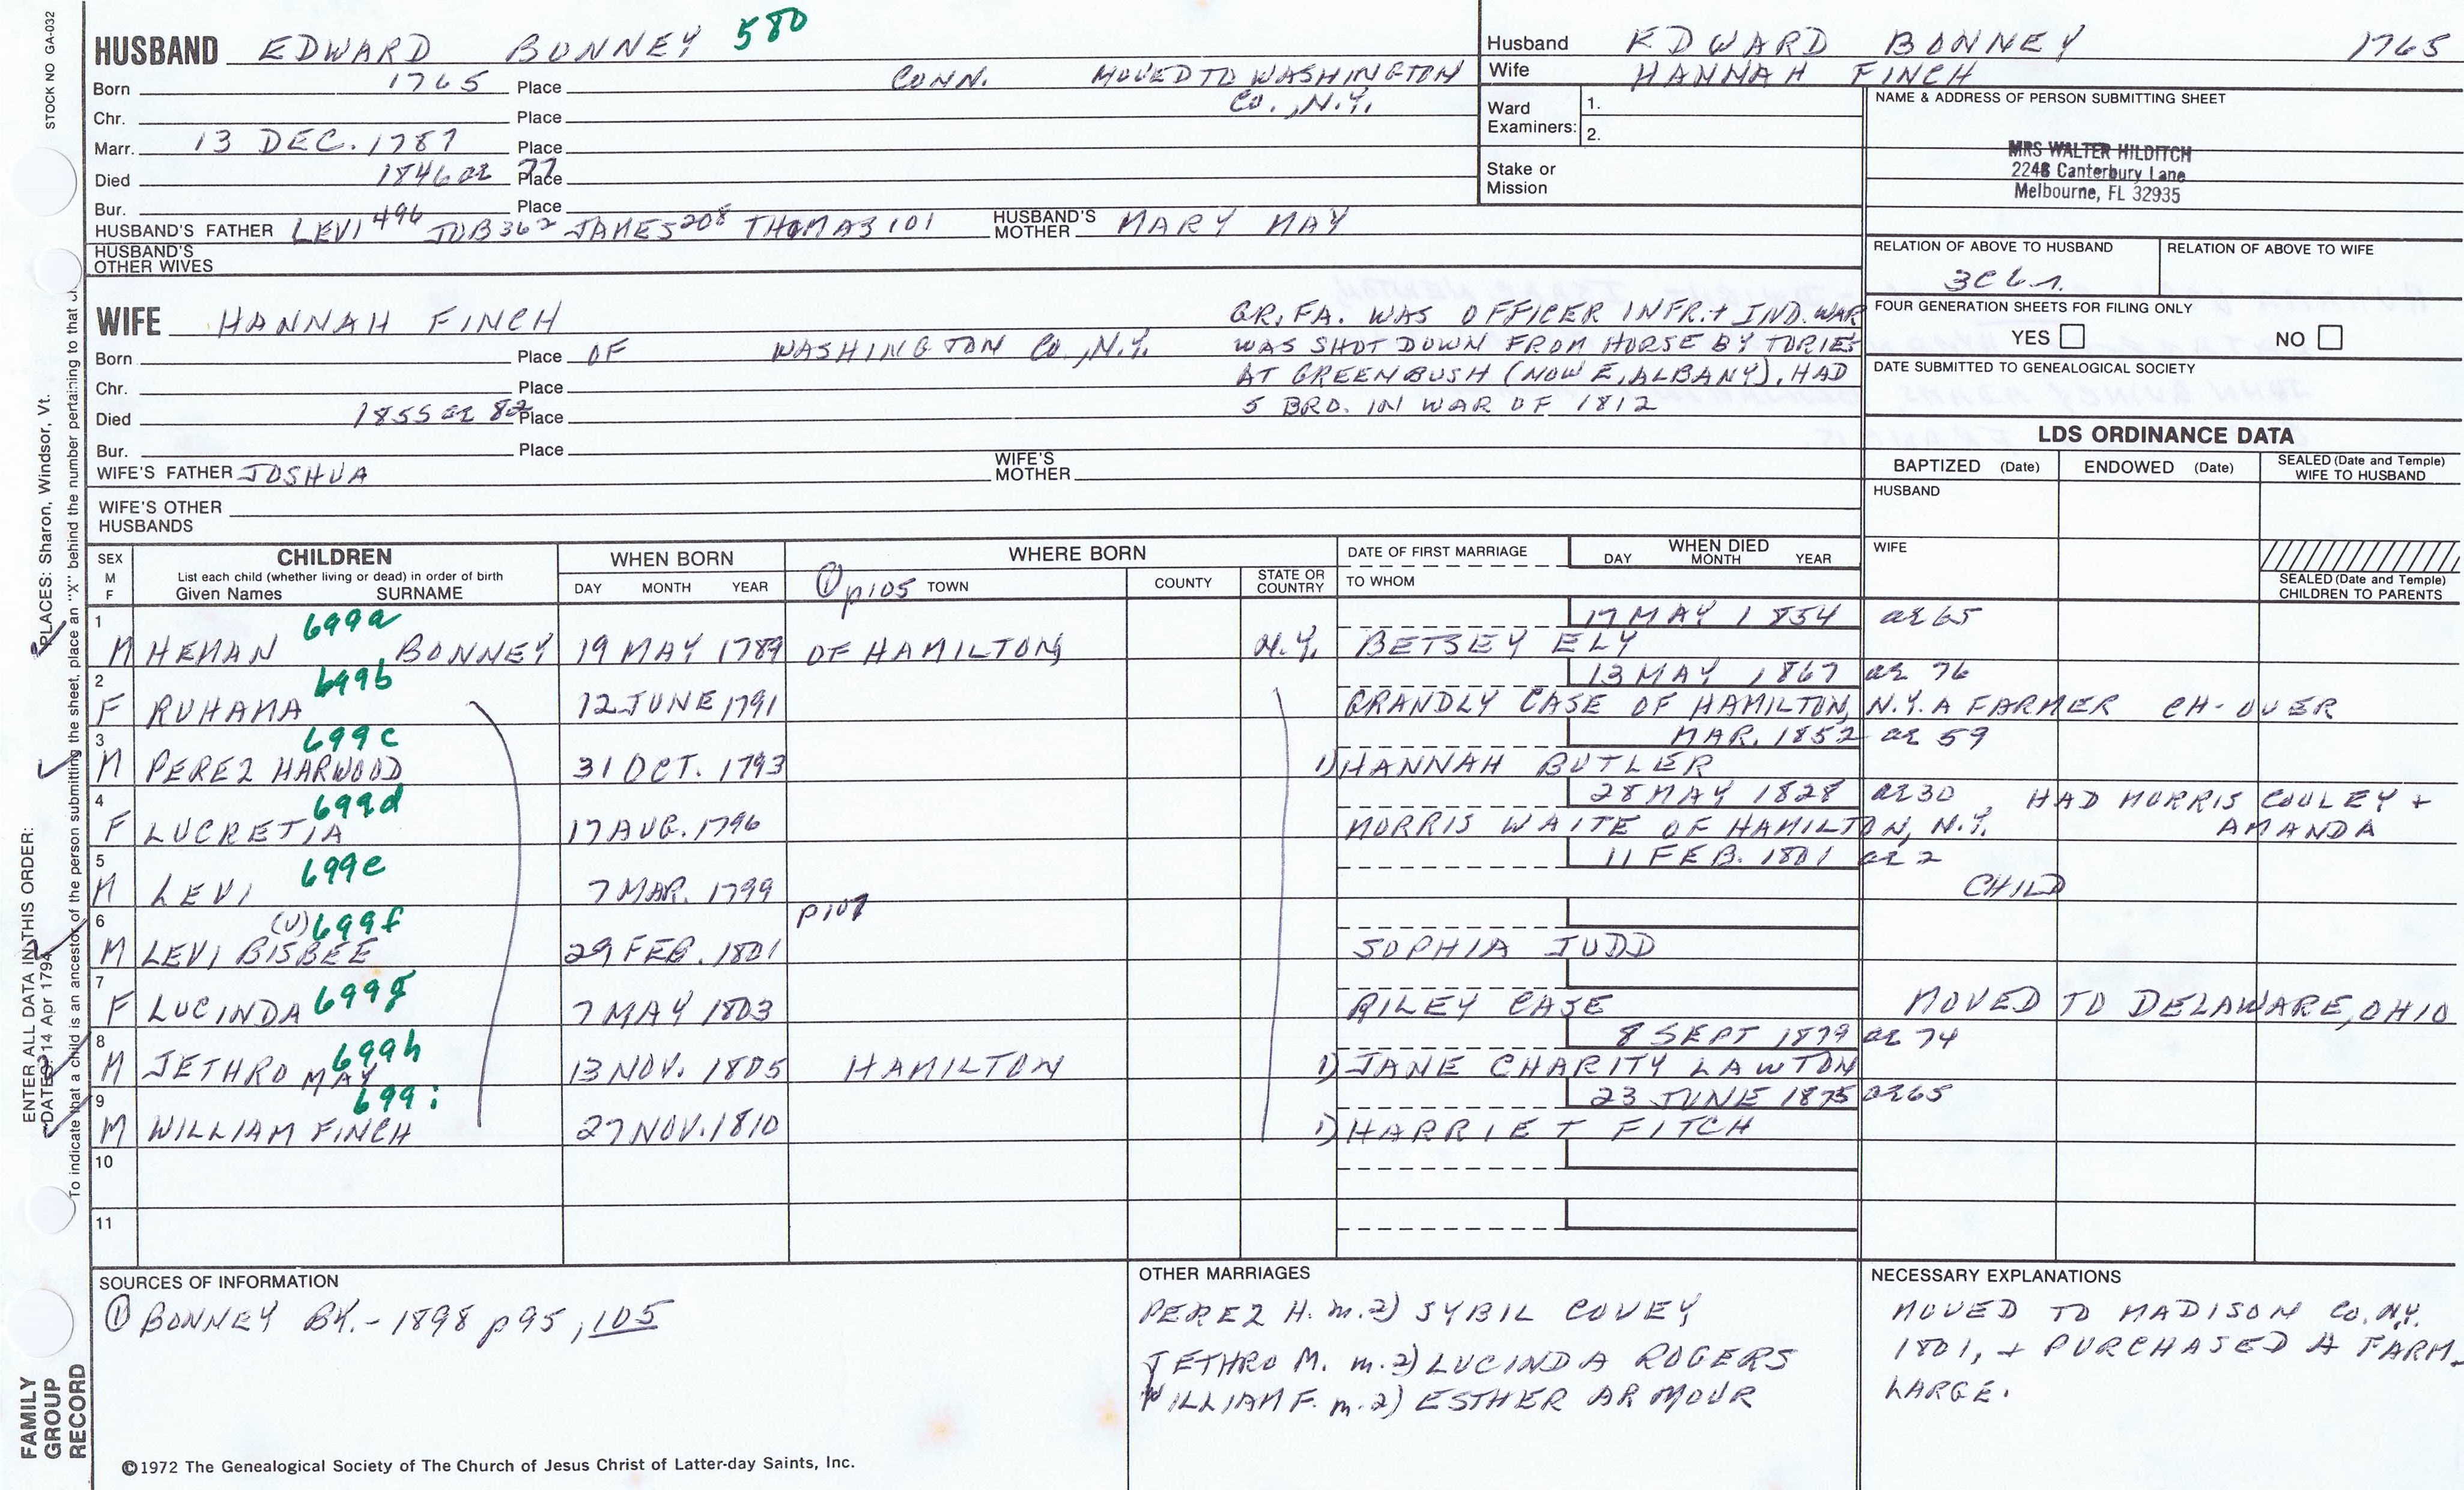 STOCK NO GA-032
HUSBAND EDWARD BONNEY 580
Born 1765 Place CONN. MOVED TO WASHINGTON
CO., N.Y.
Chr. Place
Marr. 13 DEC. 1787 Place
Died 1846 ae 77 Place
Bur. Place
HUSBAND'S FATHER LEVI 496 JOB 362 JAMES 208 THOMAS 101 HUSBAND'S MOTHER MARY MAY
HUSBAND'S
OTHER WIVES
Husband EDWARD BONNEY 1765
Wife HANNAH FINCH
Ward
Examiners: 1.
2.
Stake or
Mission
NAME & ADDRESS OF PERSON SUBMITTING SHEET
MRS WALTER HILDITCH
2248 Canterbury Lane
Melbourne, FL 32935
RELATION OF ABOVE TO HUSBAND RELATION OF ABOVE TO WIFE
FOUR GENERATION SHEETS FOR FILING ONLY
YES NO
DATE SUBMITTED TO GENEALOGICAL SOCIETY
WIFE HANNAH FINCH
Born Place OF WASHINGTON CO., N.Y.
Chr. Place
Died 1855 ae 82 Place
Bur. Place
WIFE'S FATHER JOSHUA WIFE'S MOTHER
WIFE'S OTHER
HUSBANDS
GR. FA. WAS OFFICER IN FR. + IND. WAR
WAS SHOT DOWN FROM HORSE BY TORIES
AT GREENBUSH (NOW E. ALBANY). HAD
5 BRO. IN WAR OF 1812
LDS ORDINANCE DATA
BAPTIZED (Date) ENDOWED (Date) SEALED (Date and Temple)
WIFE TO HUSBAND
HUSBAND
WIFE
SEALED (Date and Temple)
CHILDREN TO PARENTS
SEX
M
F
CHILDREN
List each child (whether living or dead) in order of birth
Given Names SURNAME
WHEN BORN
DAY MONTH YEAR
WHERE BORN
① p105 TOWN COUNTY STATE OR
COUNTRY
DATE OF FIRST MARRIAGE
TO WHOM
WHEN DIED
DAY MONTH YEAR
1 699a 17 MAY 1854 ae 65
M HEMAN BONNEY 19 MAY 1789 OF HAMILTON, N.Y. BETSEY ELY
2 699b 13 MAY 1867 ae 76
F RUHAMA 12 JUNE 1791 GRANDLY CASE OF HAMILTON, N.Y. A FARMER CH-OVER
3 699c MAR. 1852 ae 59
M PEREZ HARWOOD 31 OCT. 1793 1) HANNAH BUTLER
4 699d 28 MAY 1828 ae 30, HAD MORRIS COOLEY +
F LUCRETIA 17 AUG. 1796 MORRIS WAITE OF HAMILTON, N.Y. AMANDA
5 699e 11 FEB. 1801 ae 2
M LEVI 7 MAR. 1799 CHILD
6 (V) 699f p107
M LEVI BISBEE 29 FEB. 1801 SOPHIA JUDD
7 699g
F LUCINDA 7 MAY 1803 RILEY CASE MOVED TO DELAWARE, OHIO
8 699h 8 SEPT 1879 ae 74
M JETHRO MAY 13 NOV. 1805 HAMILTON 1) JANE CHARITY LAWTON
9 699i 23 JUNE 1875 ae 65
M WILLIAM FINCH 27 NOV. 1810 1) HARRIET FITCH
10
11
SOURCES OF INFORMATION
① BONNEY BK. - 1898 p95, 105
OTHER MARRIAGES
PEREZ H. m. 2) SYBIL COVEY
JETHRO M. m. 2) LUCINDA ROGERS
WILLIAM F. m. 2) ESTHER ARMOUR
NECESSARY EXPLANATIONS
MOVED TO MADISON CO. N.Y.
1801, + PURCHASED A FARM
LARGE.
©1972 The Genealogical Society of The Church of Jesus Christ of Latter-day Saints, Inc.
FAMILY
GROUP
RECORD
ENTER ALL DATA IN THIS ORDER:
PLACES: Sharon, Windsor, Vt.
DATES: 14 Apr 1794
To indicate that a child is an ancestor of the person submitting the sheet, place an "X" behind the number pertaining to that